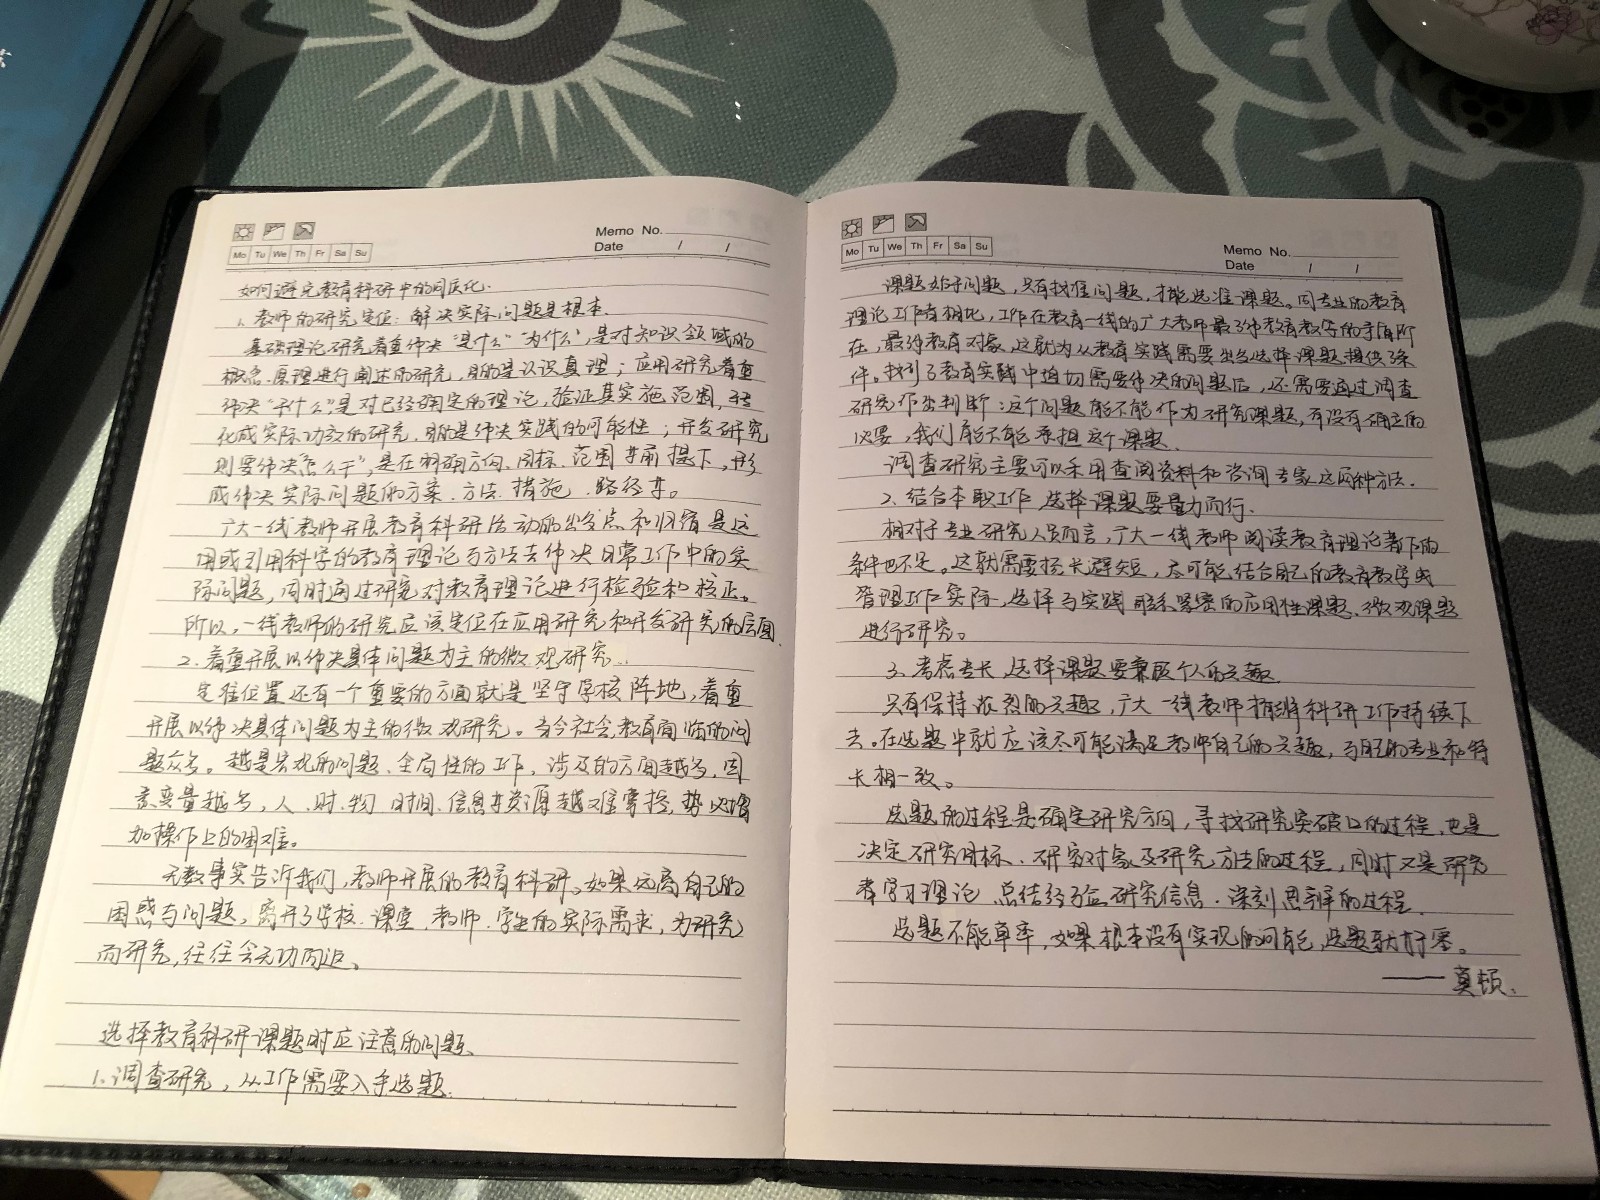 Memo No.
Date / /
Mo Tu We Th Fr Sa Su
如何避免教育科研中的同质化.
1. 教师的研究定位:解决实际问题是根本.
基础理论研究着重解决“是什么”“为什么”,是对知识领域的
概念、原理进行阐述的研究,目的是认识真理;应用研究着重
解决“干什么”,是对已经确定的理论,验证其实施范围,转
化成实际功效的研究,目的是解决实践的可能性;开发研究
则要解决“怎么干”,是在明确方向、目标、范围等前提下,形
成解决实际问题的方案、方法、措施、路径等。
广大一线教师开展教育科研活动的出发点和归宿是运
用或引用科学的教育理论与方法去解决日常工作中的实
际问题,同时通过研究对教育理论进行检验和校正。
所以,一线教师的研究应该定位在应用研究和开发研究的层面.
2. 着重开展以解决具体问题为主的微观研究.
定准位置还有一个重要的方面就是坚守学校阵地,着重
开展以解决具体问题为主的微观研究。当今社会,教育面临的问
题众多。越是宏观的问题、全局性的工作,涉及的方面越多,因
素变量越多,人、财、物、时间、信息等资源越难掌控,势必增
加操作上的困难。
无数事实告诉我们,教师开展的教育科研,如果远离自己的
困惑与问题,离开了学校、课堂、教师、学生的实际需求,为研究
而研究,往往会无功而返。
选择教育科研课题时应注意的问题.
1. 调查研究,从工作需要入手选题.
Memo No.
Date / /
Mo Tu We Th Fr Sa Su
课题始于问题,只有找准问题,才能选准课题。同专业的教育
理论工作者相比,工作在教育一线的广大教师最了解教育教学的矛盾所
在,最了解教育对象,这就为从教育实践需要出发选择课题提供条
件。找到了教育实践中迫切需要解决的问题后,还需要通过调查
研究作出判断:这个问题能不能作为研究课题,有没有确立的
必要,我们能不能承担这个课题.
调查研究主要可以采用查阅资料和咨询专家这两种方法.
2. 结合本职工作,选择课题要量力而行.
相对于专业研究人员而言,广大一线教师阅读教育理论著作的
条件也不足。这就需要扬长避短,尽可能结合自己的教育教学或
管理工作实际,选择与实践联系紧密的应用性课题、微观课题
进行研究。
3. 考虑专长,选择课题要兼顾个人的兴趣.
只有保持浓烈的兴趣,广大一线教师才能将科研工作持续下
去。在选题中就应该尽可能满足教师自己的兴趣,与自己的专业和特
长相一致。
选题的过程是确定研究方向,寻找研究突破口的过程,也是
决定研究目标、研究对象及研究方法的过程,同时又是研究
者学习理论、总结经验、研究信息、深刻思辨的过程.
选题不能草率,如果根本没有实现的可能,选题就打零。
—— 真顿.